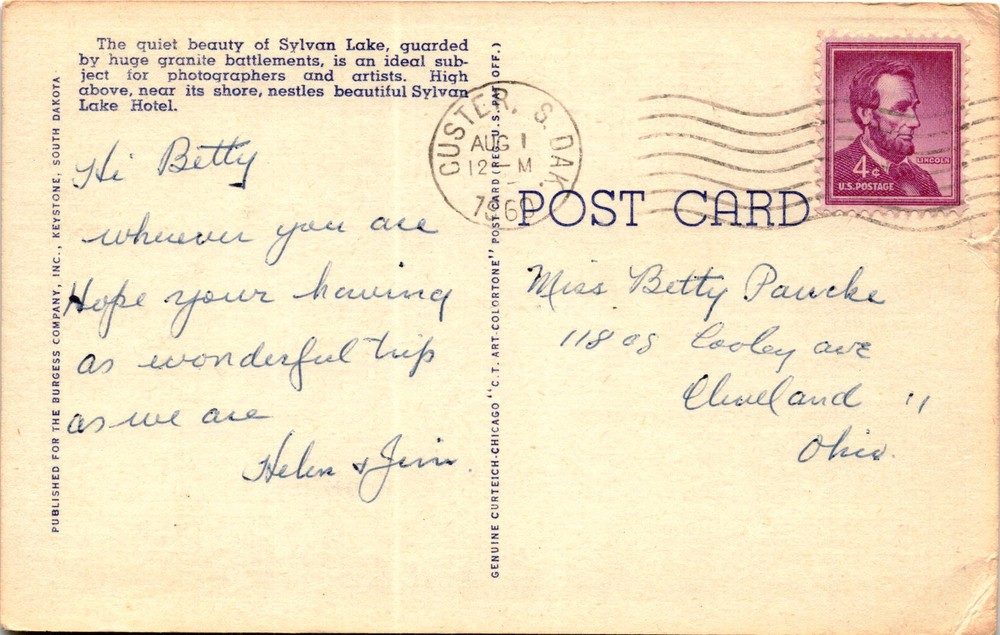 The quiet beauty of Sylvan Lake, guarded
by huge granite battlements, is an ideal sub-
ject for photographers and artists. High
above, near its shore, nestles beautiful Sylvan
Lake Hotel.
Hi Betty
wherever you are
Hope your having
as wonderful trip
as we are
Helen & Jim.
PUBLISHED FOR THE BURGESS COMPANY, INC., KEYSTONE, SOUTH DAKOTA
GENUINE CURTEICH-CHICAGO "C.T. ART-COLORTONE" POST CARD (REG. U.S. PAT. OFF.)
CUSTER, S. DAK.
AUG 1
12 - M
1960
LINCOLN
4¢
U.S. POSTAGE
POST CARD
Miss Betty Pancke
11808 Cooley ave
Cleveland 11
Ohio.